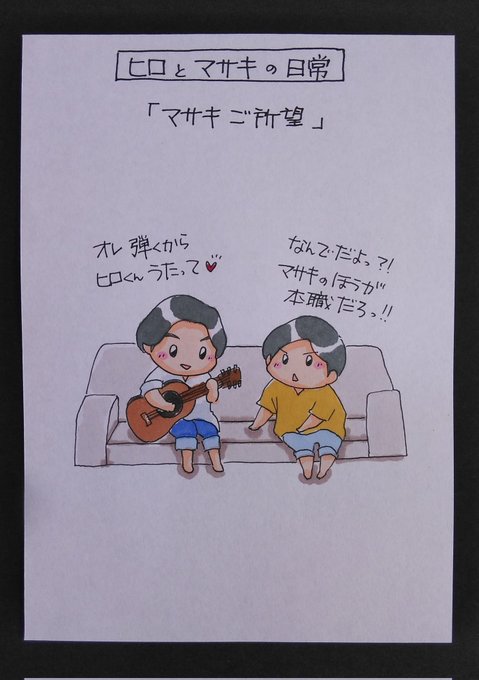 ヒロとマサキの日常
「マサキご所望」
オレ 弾くから
ヒロくん うたって♥
なんでだよっ?!
マサキのほうが
本職だろっ!!